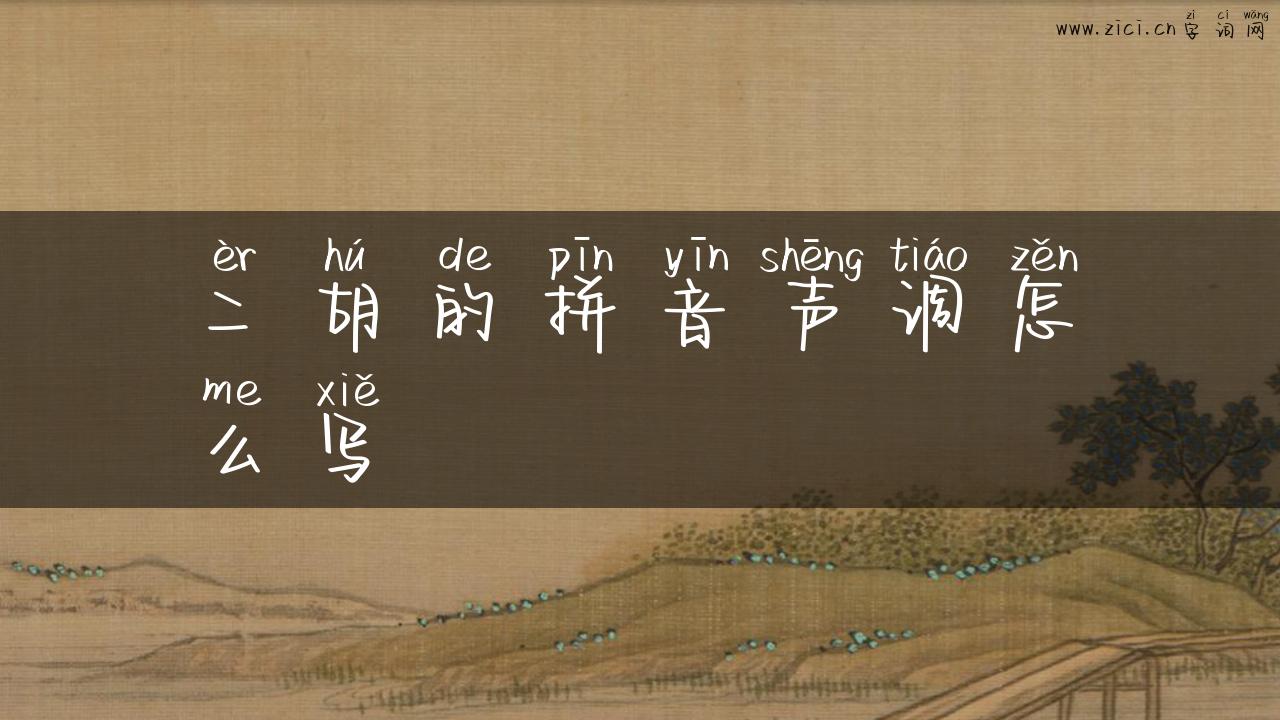 zì cí wǎng
www.zici.cn 字 词 网
èr hú de pīn yīn shēng tiáo zěn
二 胡 的 拼 音 声 调 怎
me xiě
么 写